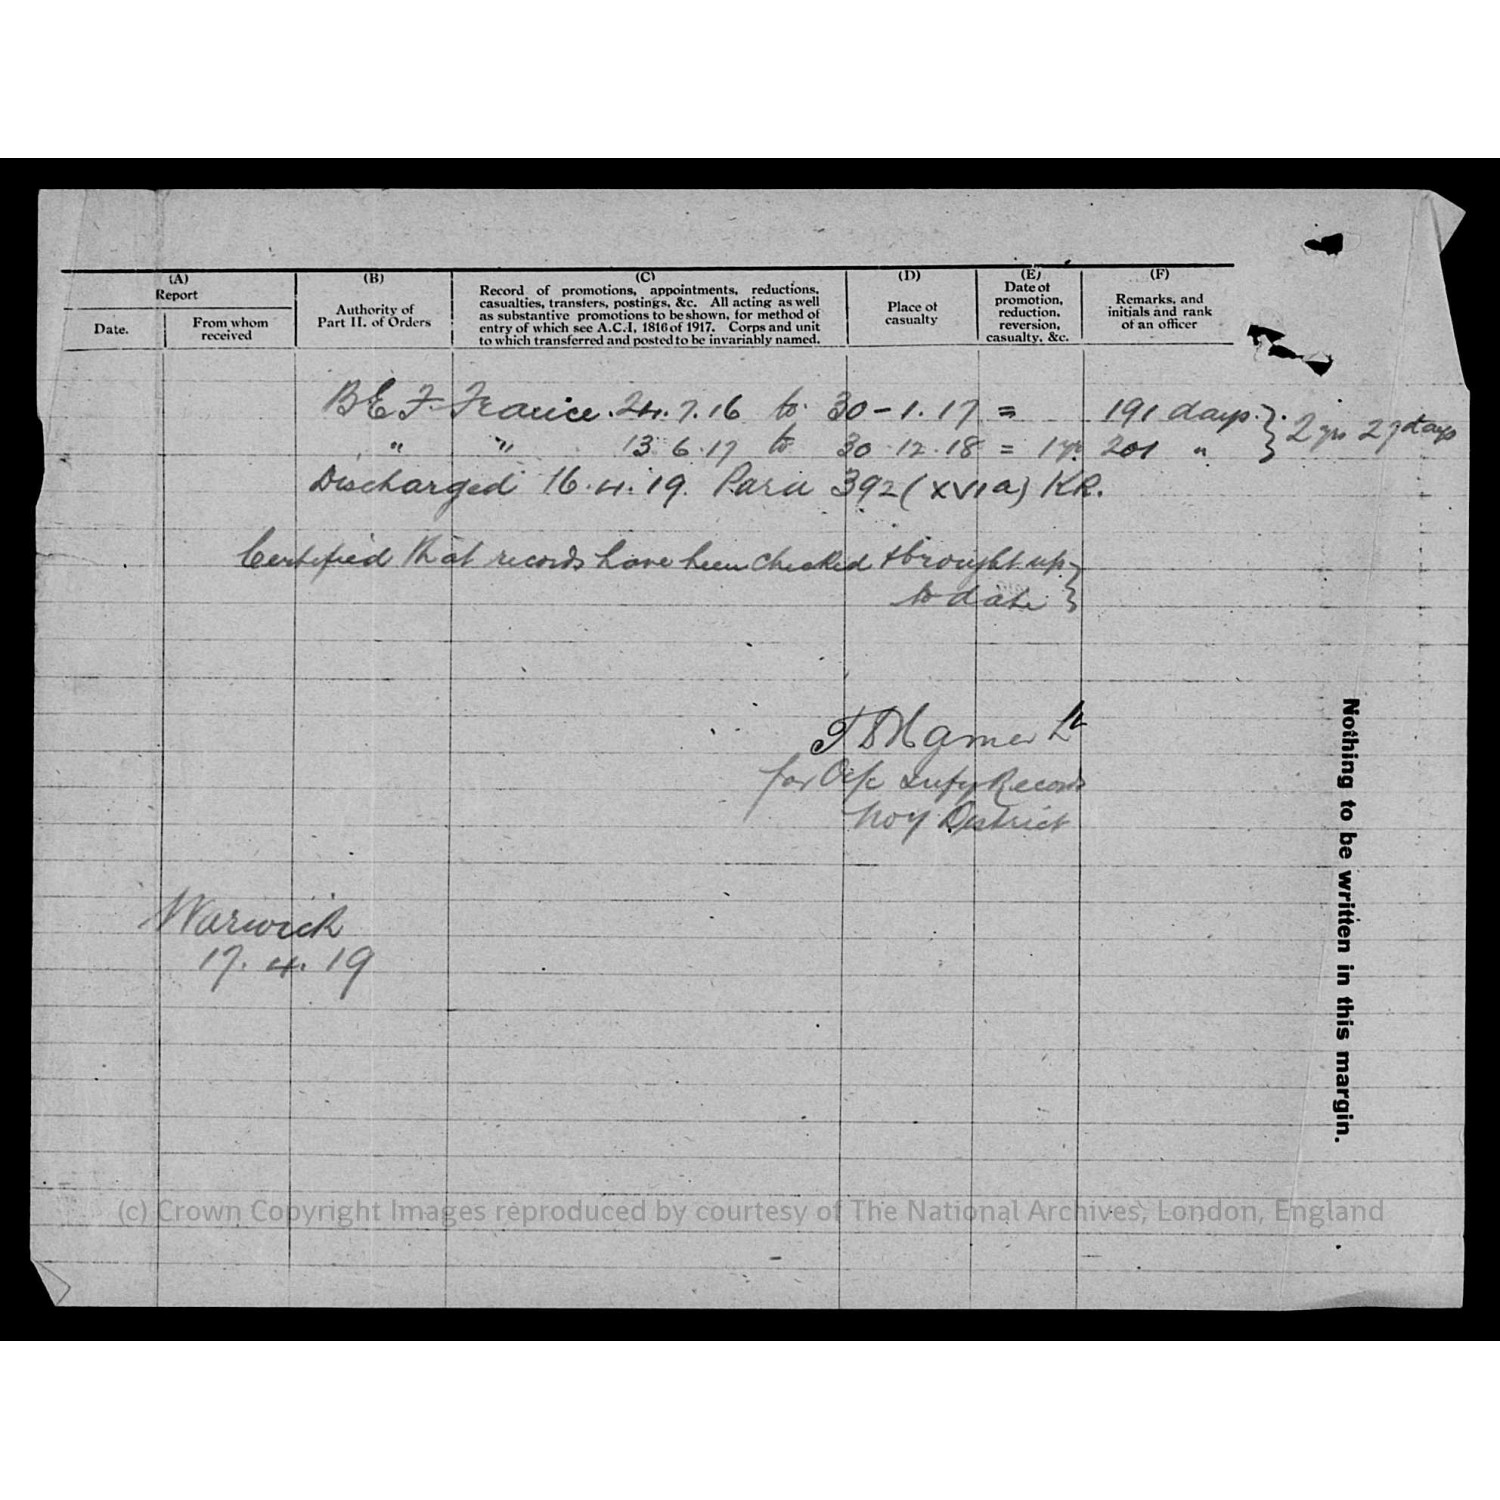 (A)
Report
Date.
From whom
received
(B)
Authority of
Part II. of Orders
(C)
Record of promotions, appointments, reductions,
casualties, transfers, postings, &c. All acting as well
as substantive promotions to be shown, for method of
entry of which see A.C.I, 1816 of 1917. Corps and unit
to which transferred and posted to be invariably named.
(D)
Place of
casualty
(E)
Date of
promotion,
reduction,
reversion,
casualty, &c.
(F)
Remarks, and
initials and rank
of an officer
BEF France. 24.7.16 to 30-1.17 = 191 days } 2 yrs 27 days
" " 13.6.17 to 30.12.18 = 1 yr. 201 "
Discharged 16.4.19. Para 392 (XVIa) KR.
Certified that records have been checked & brought up }
to date
Lt
for O i/c Infy Records
District
Warwick
17.4.19
Nothing to be written in this margin.
(c) Crown Copyright Images reproduced by courtesy of The National Archives, London, England